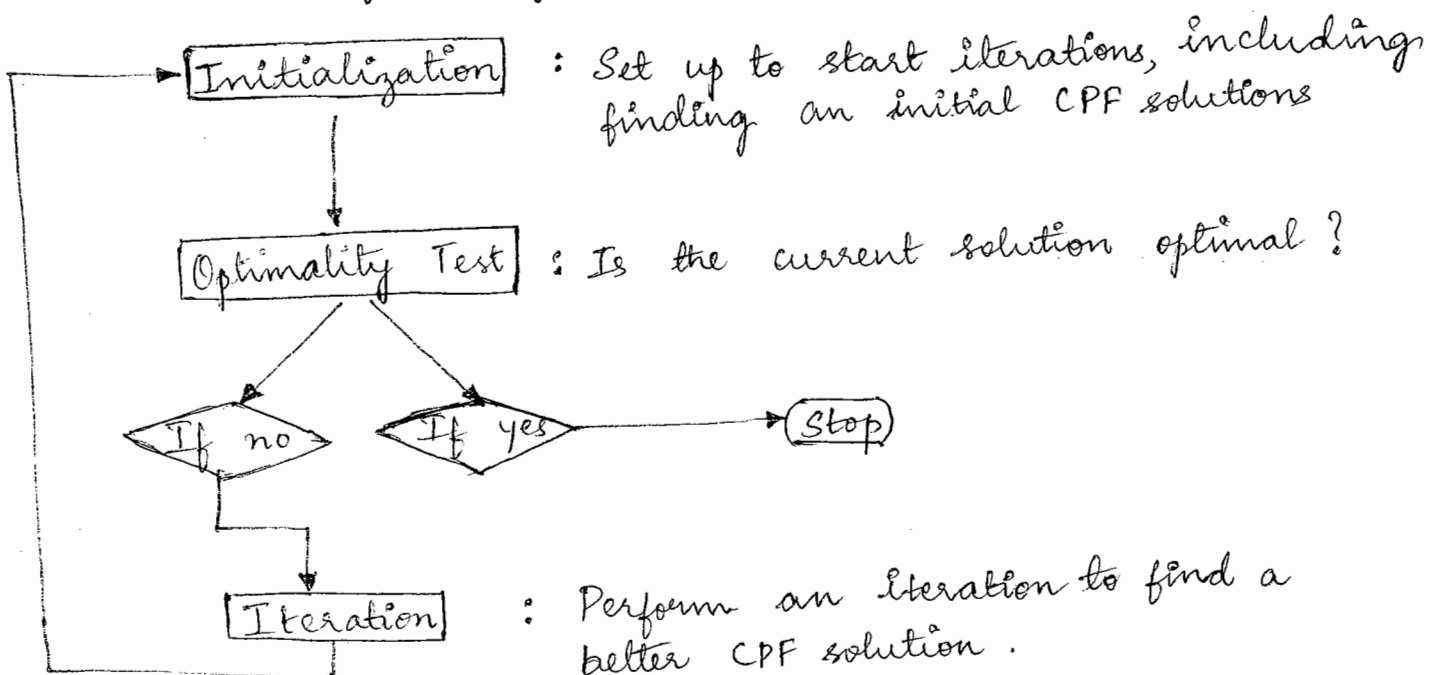 Initialization : Set up to start iterations, including
finding an initial CPF solutions
Optimality Test : Is the current solution optimal ?
If no If yes Stop
Iteration : Perform an iteration to find a
better CPF solution .